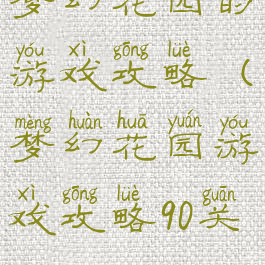 梦幻花园的
yóu xì gōng lüè
游戏攻略（
mèng huàn huā yuán yóu
梦幻花园游
xì gōng lüè guān
戏攻略90关